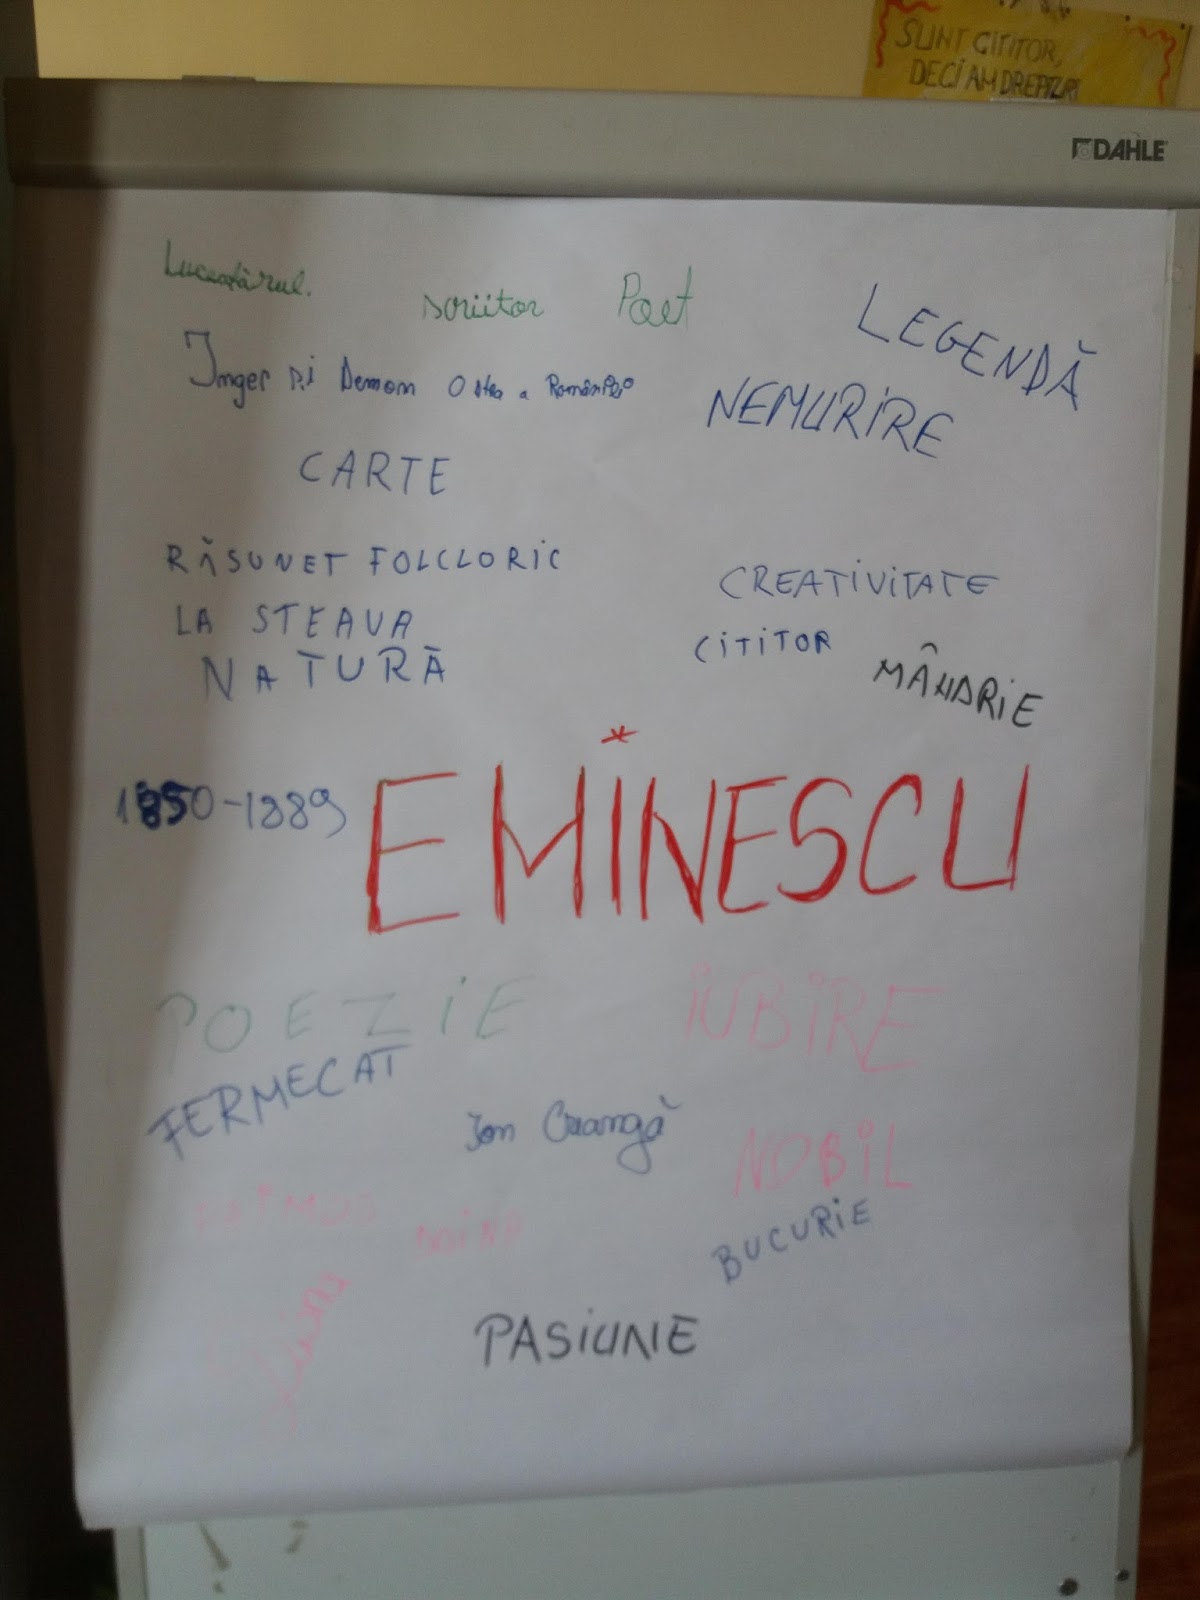 SUNT CITITOR,
DECI AM DREPTURI
DAHLE
Luceafărul.
scriitor
Poet
LEGENDĂ
Înger și Demon
O stea a României
NEMURIRE
CARTE
RĂSUNET FOLCLORIC
CREATIVITATE
LA STEAUA
CITITOR
NATURĂ
MÂNDRIE
1850-1889
EMINESCU
POEZIE
IUBIRE
FERMECAT
Ion Creangă
NOBIL
DOINA
BUCURIE
PASIUNE